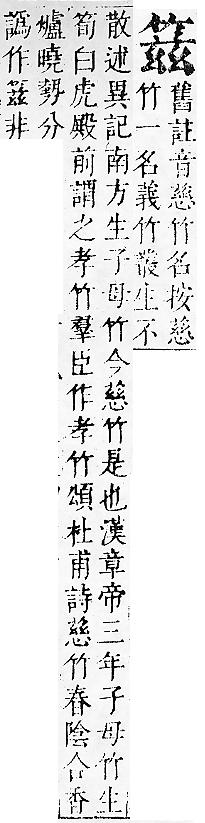 䈘舊註音慈竹名按慈
竹一名義竹叢生不
散述異記南方生子母竹今慈竹是也漢章帝三年子母竹生
筍白虎殿前謂之孝竹羣臣作孝竹頌杜甫詩慈竹春陰合香
爐曉勢分
譌作䈘非